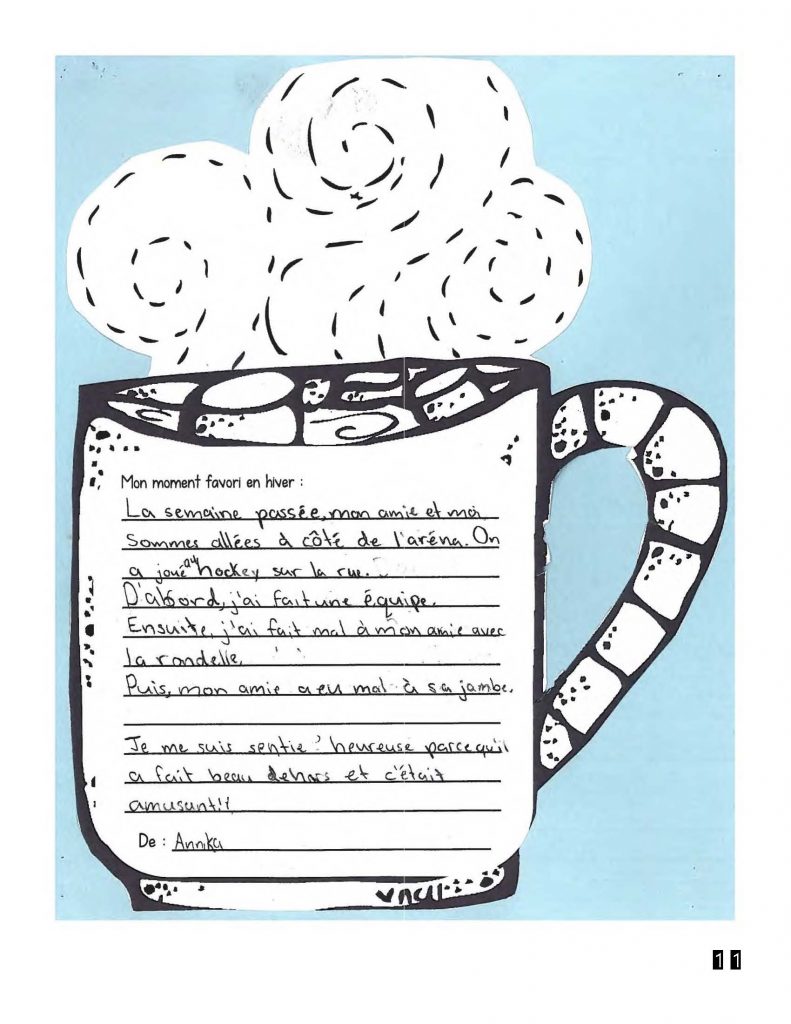 Mon moment favori en hiver :
La semaine passée, mon amie et moi
sommes allées à côté de l'aréna. On
a joué au hockey sur la rue.
D'abord, j'ai fait une équipe.
Ensuite, j'ai fait mal à mon amie avec
la rondelle.
Puis, mon amie a eu mal à sa jambe.
Je me suis sentie heureuse parce qu'il
a fait beau dehors et c'était
amusant!!
De : Annika
11